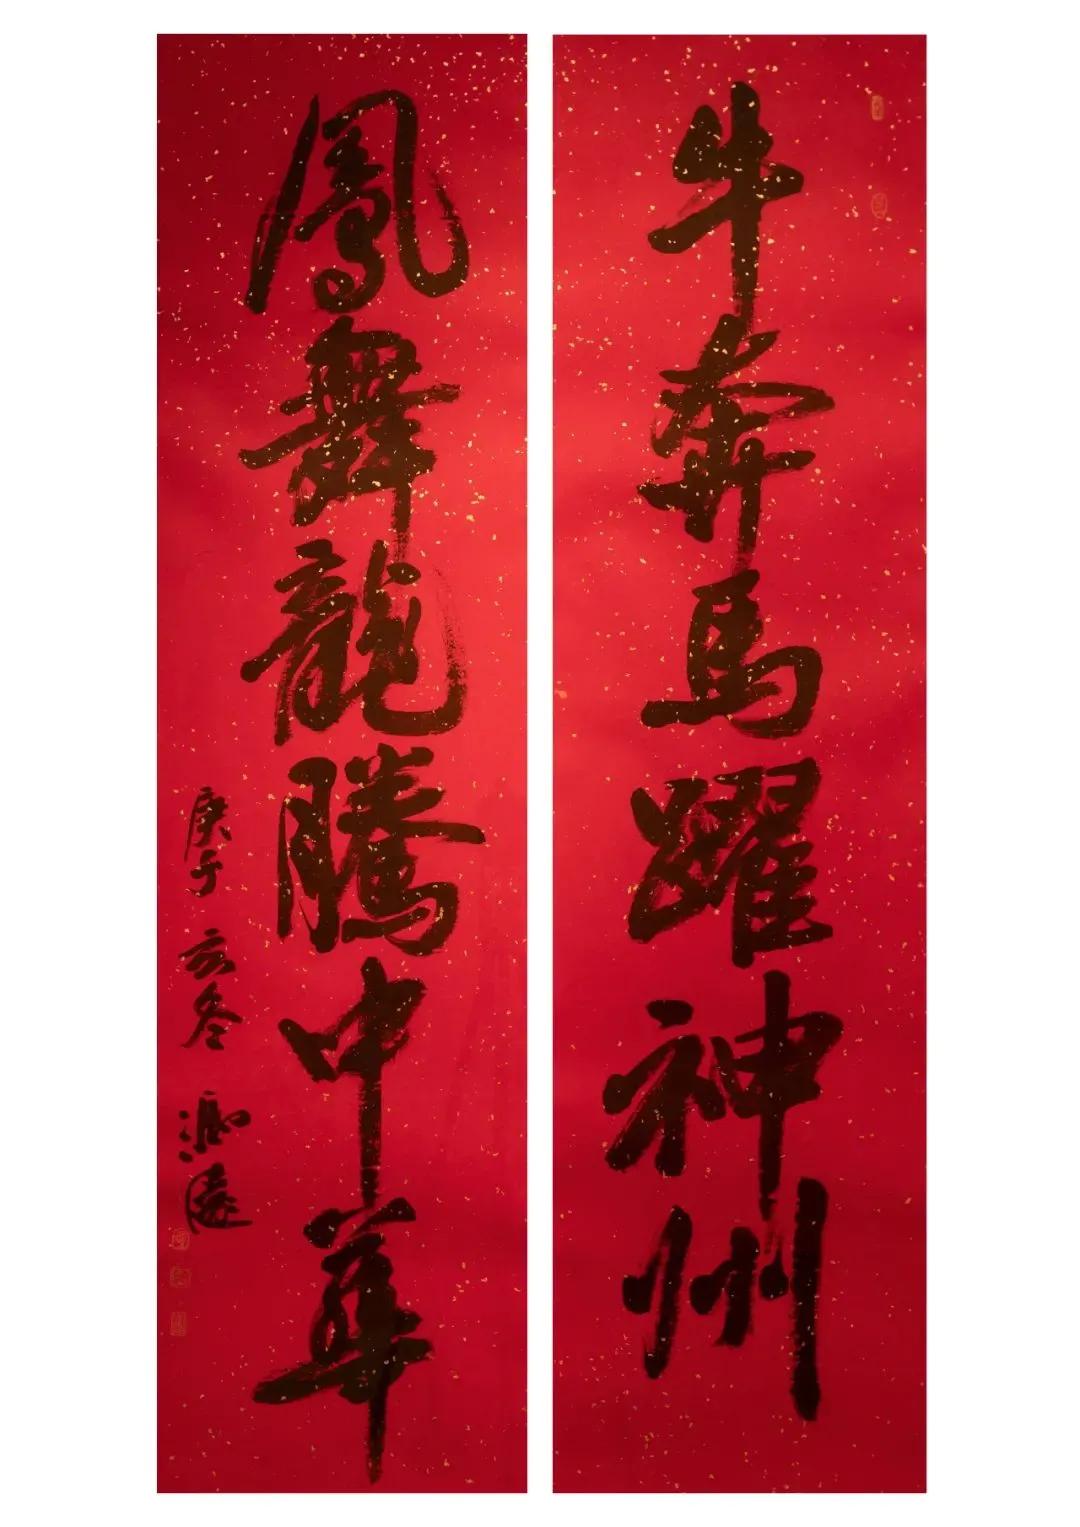 牛奔馬躍神州
鳳舞龍騰中華
庚子 亥冬